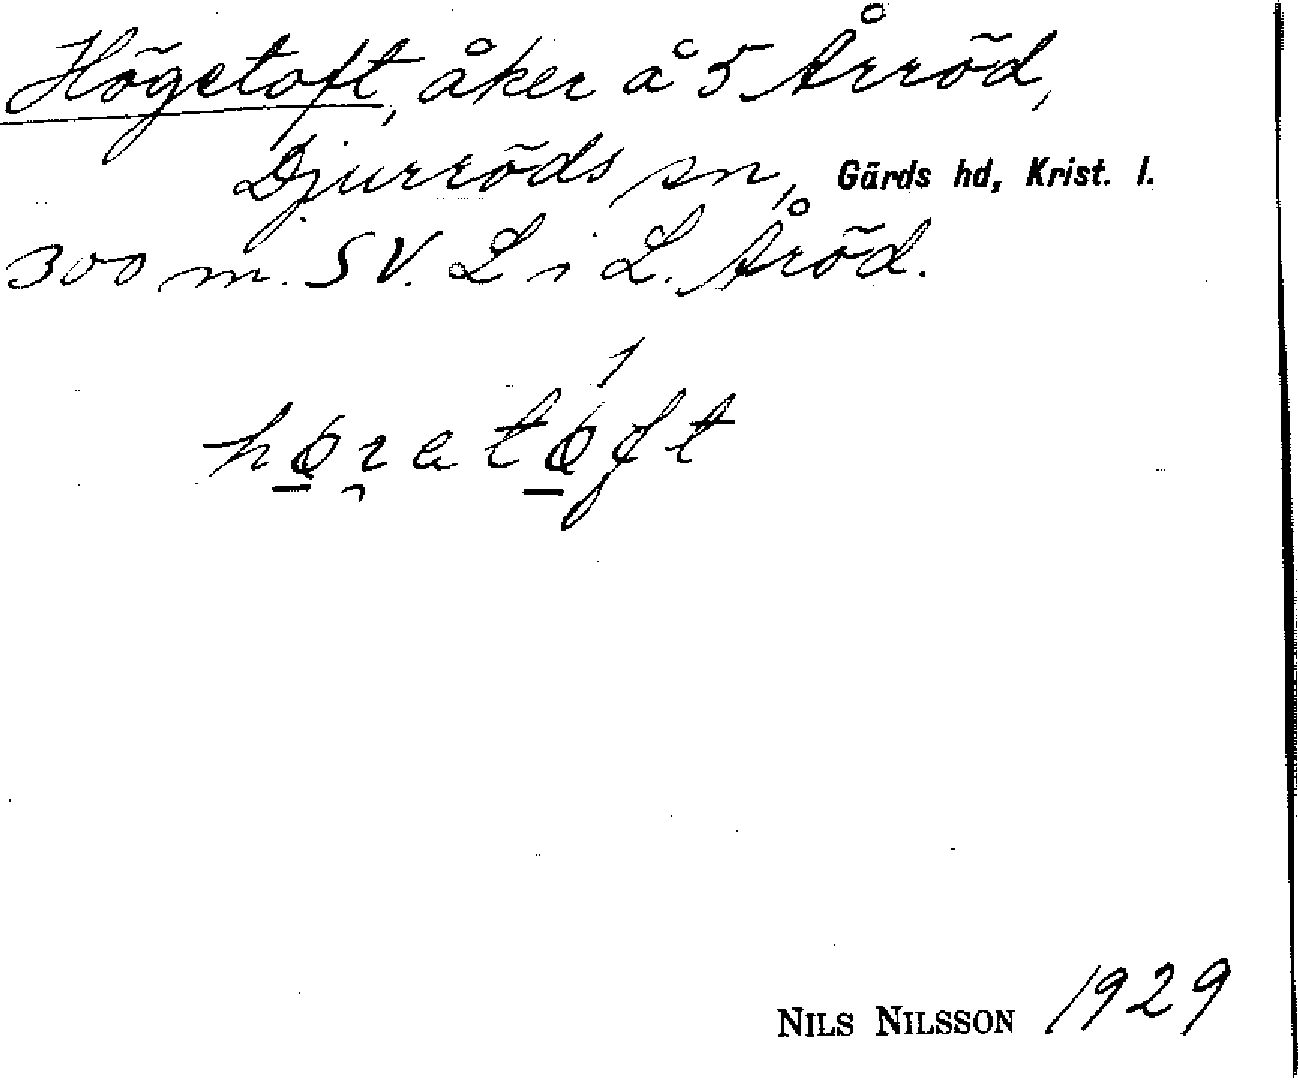 Högetoft, åker å 5 Årröd,
Djurröds sn, Gärds hd, Krist. l.
300 m. SV. L i L. Åröd.
høꝛatøft
NILS NILSSON 1929